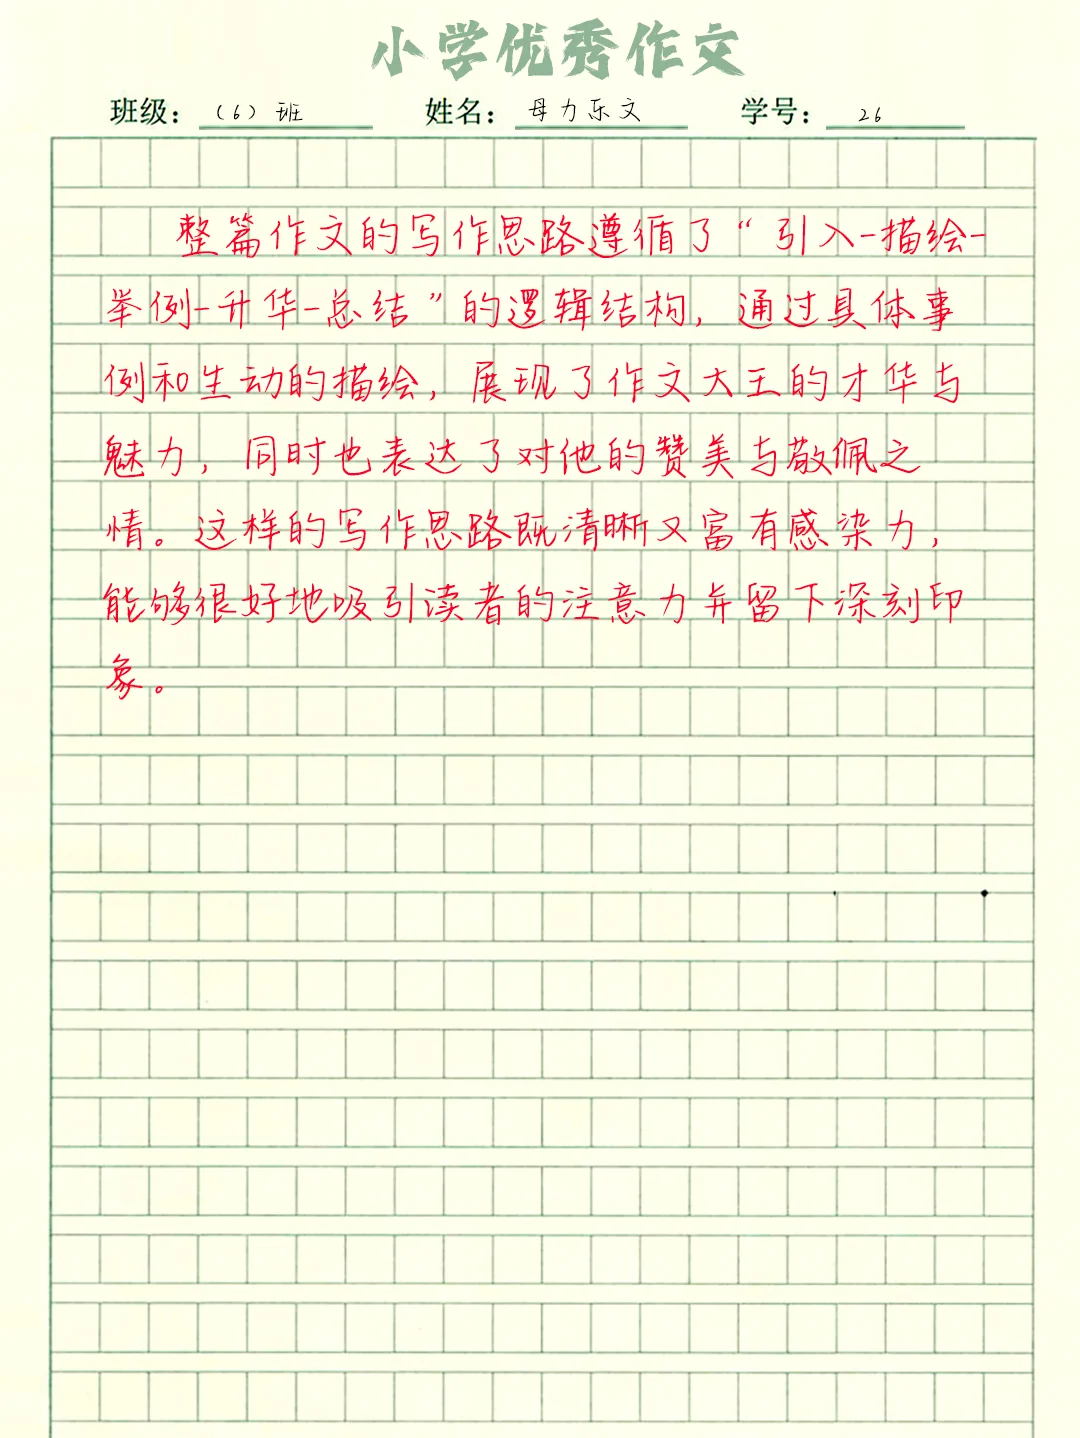 小学优秀作文
班级：（6）班 姓名：母力乐文 学号：26
整篇作文的写作思路遵循了“引入-描绘-
举例-升华-总结”的逻辑结构，通过具体事
例和生动的描绘，展现了作文大王的才华与
魅力，同时也表达了对他的赞美与敬佩之
情。这样的写作思路既清晰又富有感染力，
能够很好地吸引读者的注意力并留下深刻印
象。